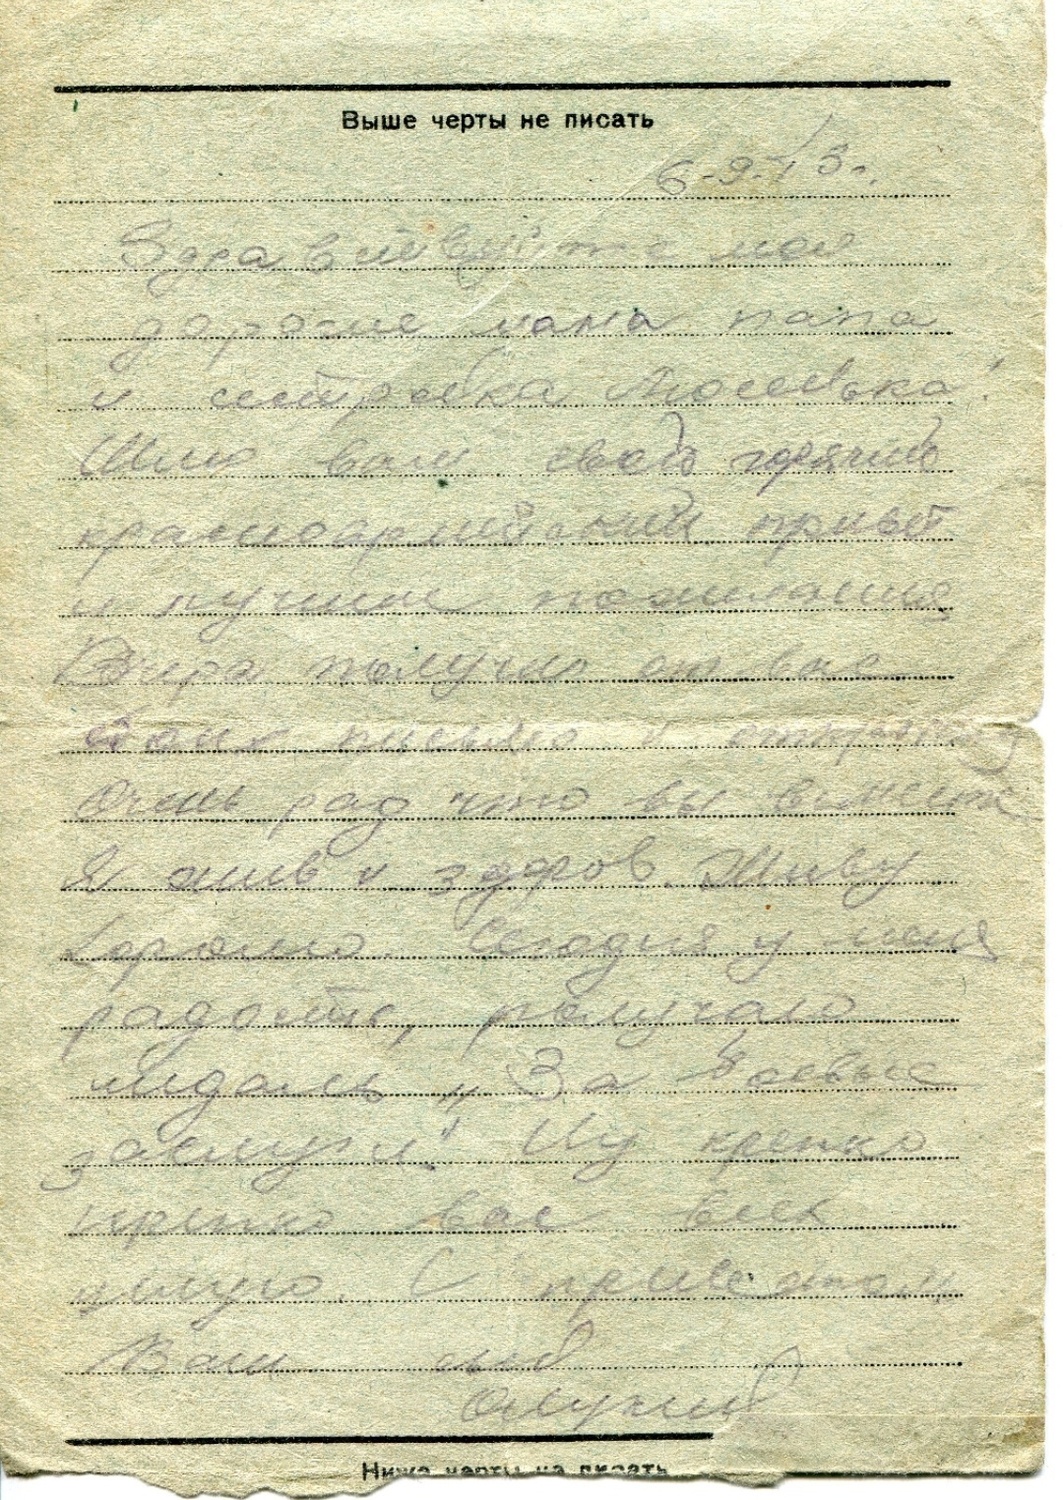 Выше черты не писать
6-9-43 г.
Здравствуйте мои
дорогие мама папа
и сестренка
Шлю вам свой горячий
красноармейский привет
и лучшие пожелания
Вчера получил от вас
письмо и открытку
Очень рад что вы вместе
Я жив и здоров. Живу
хорошо. Сегодня у меня
радость, получаю
медаль „За боевые
заслуги". Ну крепко
крепко вас всех
целую. С приветом
Ваш сын
Ниже черты не писать